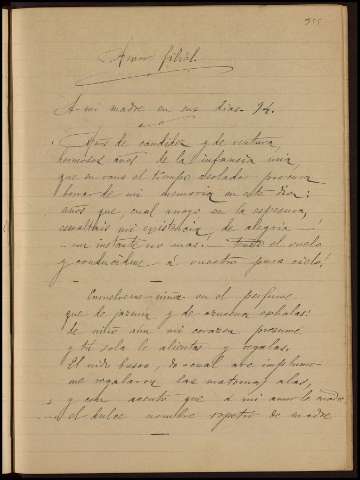 355
Amor filial.
A mi madre en sus dias. 94.
Años de candidez y de ventura,
hermosos años de la infancia mia,
que en vano el tiempo desolador procura
borrar de mi memoria en este dia:
años que, cual rayo en la espesura,
esmaltais mi existencia de alegria
un instante no mas! el vuelo
y conducidme á vuestro puro cielo!
en el perfume
que de jazmin y de azucena exhalas:
de niño aún mi corazon presume
y tú sola le alientas y regalas.
El nido busco, do cual ave implume
me regalaron las maternas alas,
y con acento que á mi amor le cuadre
el dulce nombre repetir de madre